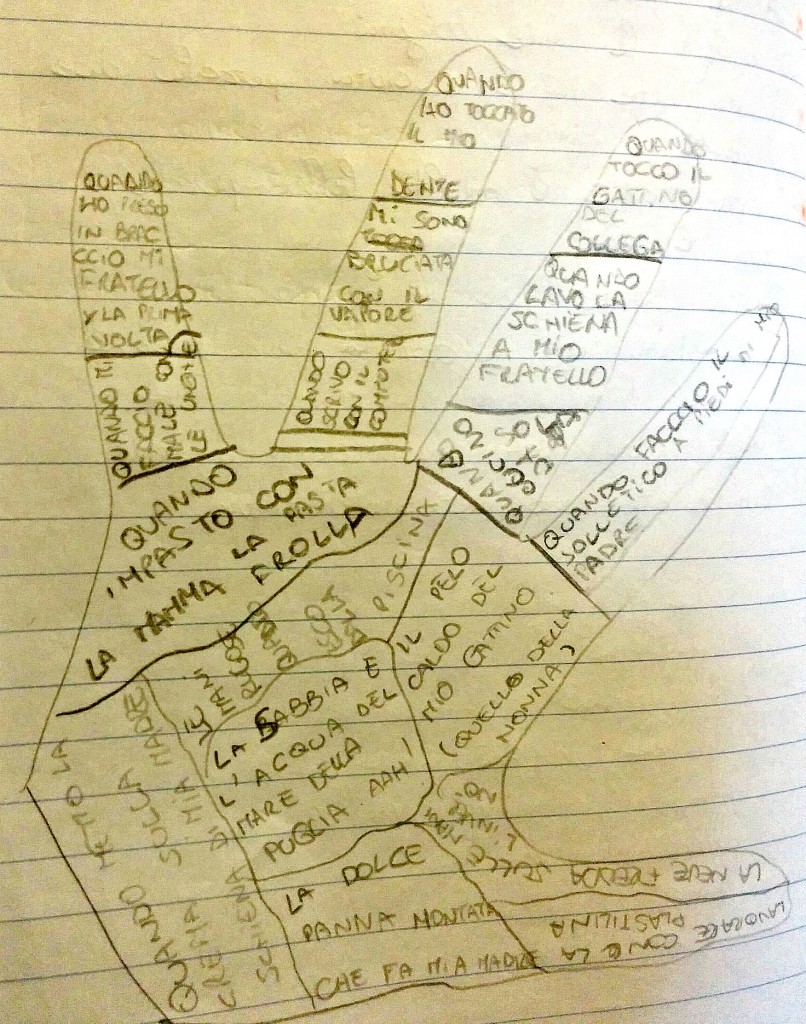 QUANDO
HO PRESO
IN BRAC
CCIO MI
FRATELLO
X LA PRIMA
VOLTA
QUANDO MI
FACCIO
MALE CON
LE UNGHIE
QUANDO
HO TOCCATO
IL MIO
DENTE
MI SONO
BRUCIATA
CON IL
VAPORE
QUANDO
SCRIVO
CON IL
COMPUTER
QUANDO
TOCCO IL
GATTINO
DEL
COLLEGA
QUANDO
LAVO LA
SCHIENA
A MIO
FRATELLO
QUANDO
QUANDO FACCCIO IL
SOLLETICO A PIEDI MI MIO
PADRE
QUANDO
IMPASTO CON
LA MAMMA LA PASTA
FROLLA
LE MANI
RUGOSE
QUANDO
ESCO
DALLA
PISCINA
IL PELO
CALDO DEL
MIO GATTINO
(QUELLO DELLA
NONNA)
LA SABBIA E
L'ACQUA DEL
MARE DELLA
PUGLIA AAH!
QUANDO METTO LA
CREMA SULLA
SCHIENA DI MIA MADRE
LA DOLCE
PANNA MONTATA
CHE FA MIA MADRE
LA NEVE FREDDA SULLE MANI
L'INVERNO
LAVORARE CON LA
PLASTILINA